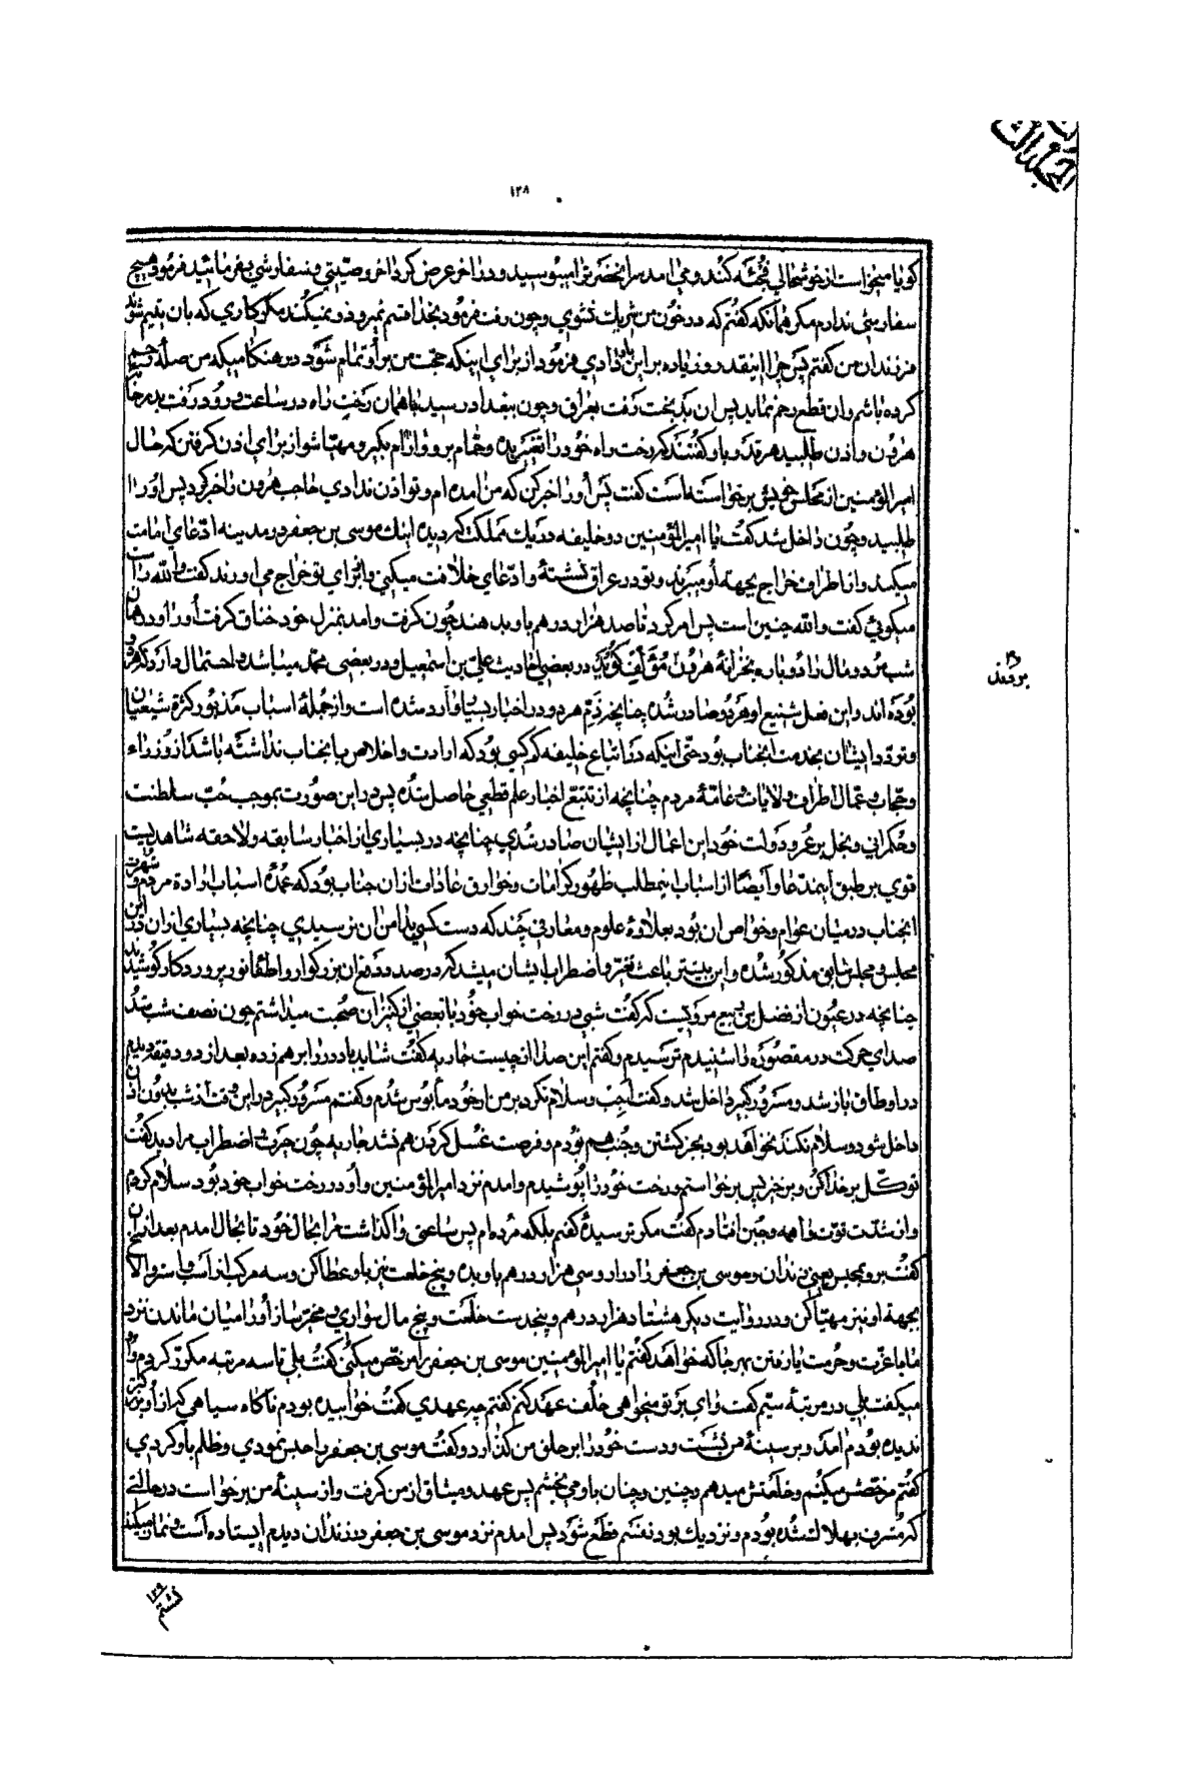 ۱۲۸
کویا میخواست از خوشحالی قهقهه کند و می‌آمد سر آنحضرترا میبوسید و در آخر عرض کرد آخر وصیتی و سفارشی بفرمائید فرمود هیچ
سفارشی ندارم مکر همانکه کفتم که در خون من شریک نشوی و چون رفت فرمود بخدا قسم نمیرود و نمیکند مکر کاری که بآن یتیم شوند
فرزندان من کفتم پس چرا اینقدر و زیاده بر این باو دادی فرمود از برای اینکه حجت من بر او تمام شود در هنکامیکه من صلهٔ رحم
کرده باشم و آن قطع رحم نماید پس آن بدبخت رفت بعراق و چون ببغداد رسید با همان رخت راه در ساعت ورود رفت بدر خانه
هرون و اذن طلبید هر قدر باو کفتند که رخت راه خود را تغییر ده و حمام برو و آرام بکیر و مهیا شو از برای اذن کرفتن که حال
امیرالمؤمنین از مجلس خویش برخواسته است کفت پس او را خبر کن که من آمده‌ام و تو اذن ندادی حاجب هرون را خبر کرد پس او را
طلبید و چون داخل شد کفت یا امیرالمؤمنین دو خلیفه در یک مملکت که دیده اینک موسی بن جعفر در مدینه ادعای امامت
میکند و از اطراف خراج بجهة او میبرند و تو در عراق نشستهٔ و ادعای خلافت میکنی و از برای تو خراج می‌آورند کفت والله راست
میکوئی کفت والله چنین است پس امر کرد تا صد هزار درهم باو بدهند چون کرفت و آمد بمنزل خود خناق کرفت او را و در همان
شب مرد و مال را دوباره بخزانهٔ هرون مؤلف کوید در بعضی احادیث علی بن اسمعیل و در بعضی محمد میباشد و احتمال دارد که هر دو
بوده‌اند و این فعل شنیع از هر دو صادر شده چنانچه ذم هر دو در اخبار بسیار وارد شده است و از جملهٔ اسباب مذبور کثرة شیعیان
و تودد ایشان بخدمت آنجناب بود حتی اینکه در اتباع خلیفه کم کسی بود که ارادت و اخلاص بآنجناب نداشته باشد از وزراء
و حجاب و عمال اطراف و ولایات و عامهٔ مردم چنانچه از تتبع اخبار علم قطعی حاصل شده پس در این صورت بموجب حب سلطنت
و حکمرانی و بخل بر عمر و دولت خود این اعمال از ایشان صادر شدی چنانچه در بسیاری از اخبار سابقه و لاحقه شاهدیست
قوی بر طبق اینمدعا و ایضاً از اسباب اینمطلب ظهور کرامات و خوارق عادات از آن جناب بود که عمده اسباب ارادة مردم و شهرت
آنجناب در میان عوام و خواص آن بود بعلاوهٔ علوم و معارفی چند که دست کسی بدامن آن نرسیدی چنانچه بسیاری از آن در این
مجلس و مجلس سابق مذکور شده و این بیشتر باعث تغیر و اضطراب ایشان میشد که در صدد دفع آن بزرکوار و اطفاء نور پروردکار کوشیدند
چنانچه در عیون از فضل بن ربیع مرویست که کفت شبی در رخت خواب خود با بعضی از کنیزان صحبت میداشتم چون نصف شب شد
صدای حرکت در مقصوره را شنیدم ترسیدم و کفتم این صدا از چیست جاریه کفت شاید باد در را بر هم زده بعد از دو دقیقه دیدم
در اوطاق باز شد و مسرور کبیر داخل شد و کفت اجب و سلام نکرد بر من از خود مأیوس شدم و کفتم مسرور کبیر در این وقت از شب بدون اذن
داخل شود و سلام نکند نخواهد بود بجز کشتن و جنب هم بودم و فرصت غسل کردن هم نشد جاریه چون حیرت و اضطراب مرا دید کفت
توکل بر خدا کن و برخیز پس برخواستم و رخت خود را پوشیدم و آمدم نزد امیرالمؤمنین و او در رخت خواب خود بود سلام کردم
و از شدت قوت واهمه و جبن افتادم کفت مکر ترسیدهٔ کفتم بلکه مرده‌ام پس ساعتی واکذاشت مرا بحال خود تا بحال آمدم بعد از آن
کفت برو بحبس یعنی زندان و موسی بن جعفر را درآر و سی هزار درهم باو بده و پنج خلعت نیز باو عطا کن و سه مرکب از اسب و استر و الاغ
بجهة او نیز مهیا کن و در روایت دیکر هشتاد هزار درهم و پنجدست خلعت و پنج مال سواری و مخیر ساز او را میان ماندن نزد
ما با عزت و حرمت یا رفتن بهر جا که خواهد کفتم یا امیرالمؤمنین موسی بن جعفر را مرخص میکنی کفت بلی تا سه مرتبه مکرر کردم و او
میکفت بلی در مرتبهٔ سیم کفت وای بر تو میخواهی خلف عهد کنم کفتم چه عهدی کفت خوابیده بودم ناکاه سیاهی که از او بزرکتر
ندیده بودم آمد و بر سینهٔ من نشست و دست خود را بر حلق من کذارد و کفت موسی بن جعفر را حبس نمودی و ظلم باو کردی
کفتم مرخصش میکنم و خلعتش میدهم و چنین و چنان باو می‌بخشم پس عهد و میثاق از من کرفت و از سینهٔ من برخواست در حالتی
که مشرف بهلاکت شده بودم و نزدیک بود نفسم قطع شود پس آمدم نزد موسی بن جعفر در زندان دیدم ایستاده است و نماز میکند
بردند